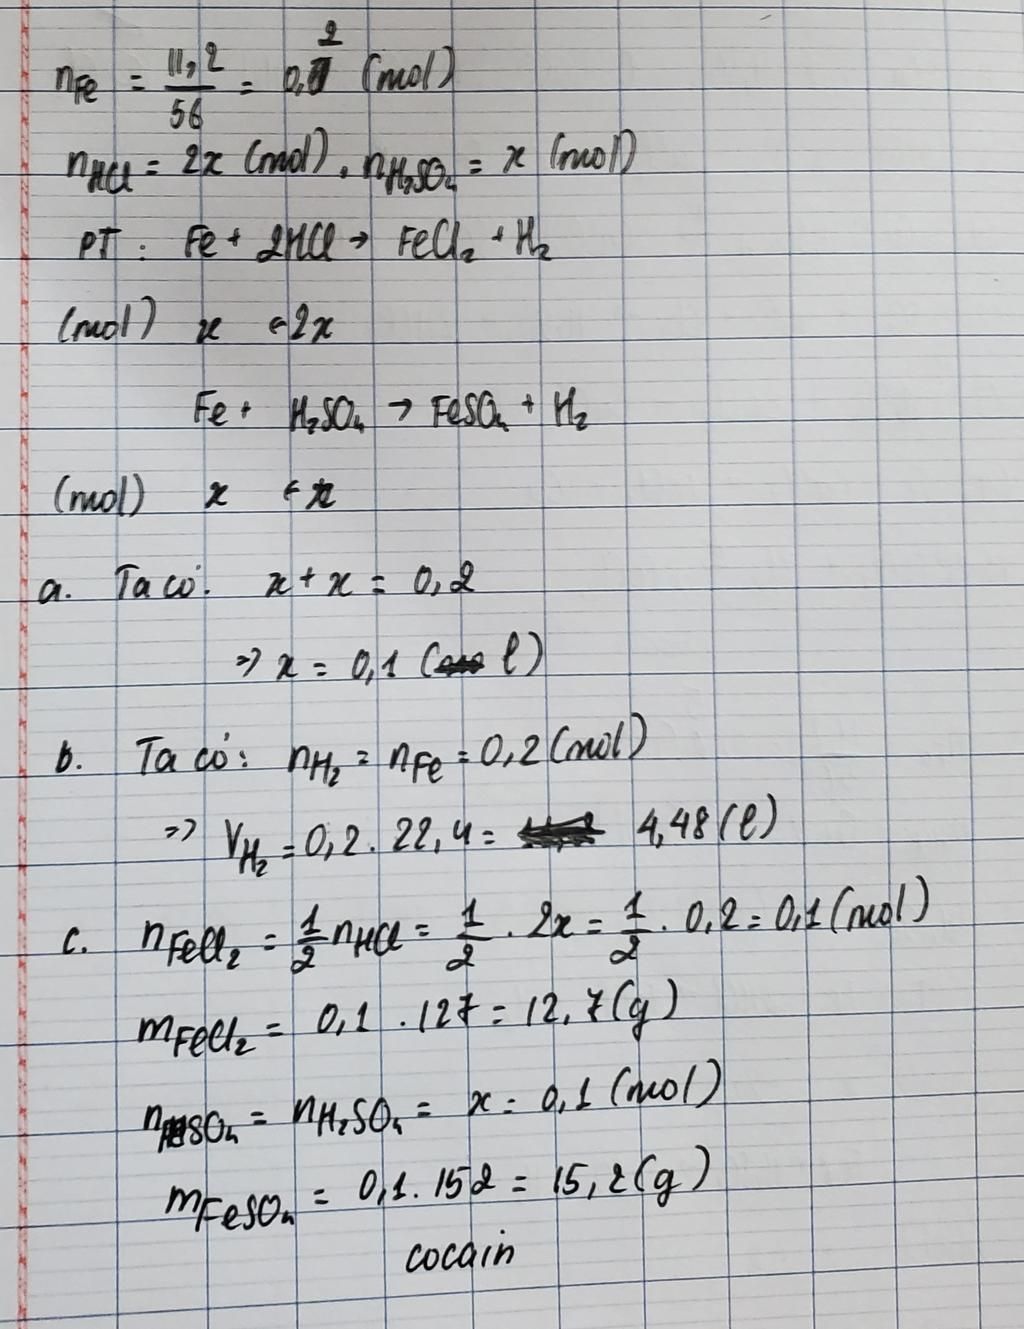 nFe = 11,2/56 = 0,2 (mol)
nHCl = 2x (mol), nH₂SO₄ = x (mol)
PT: Fe + 2HCl → FeCl₂ + H₂
(mol) x ← 2x
Fe + H₂SO₄ → FeSO₄ + H₂
(mol) x ← x
a. Ta có: x + x = 0,2
=> x = 0,1 (l)
b. Ta có: nH₂ = nFe = 0,2 (mol)
=> VH₂ = 0,2 . 22,4 = 4,48 (l)
c. nFeCl₂ = 1/2 nHCl = 1/2 . 2x = 1/2 . 0,2 = 0,1 (mol)
mFeCl₂ = 0,1 . 127 = 12,7 (g)
nFeSO₄ = nH₂SO₄ = x = 0,1 (mol)
mFeSO₄ = 0,1 . 152 = 15,2 (g)
cocain